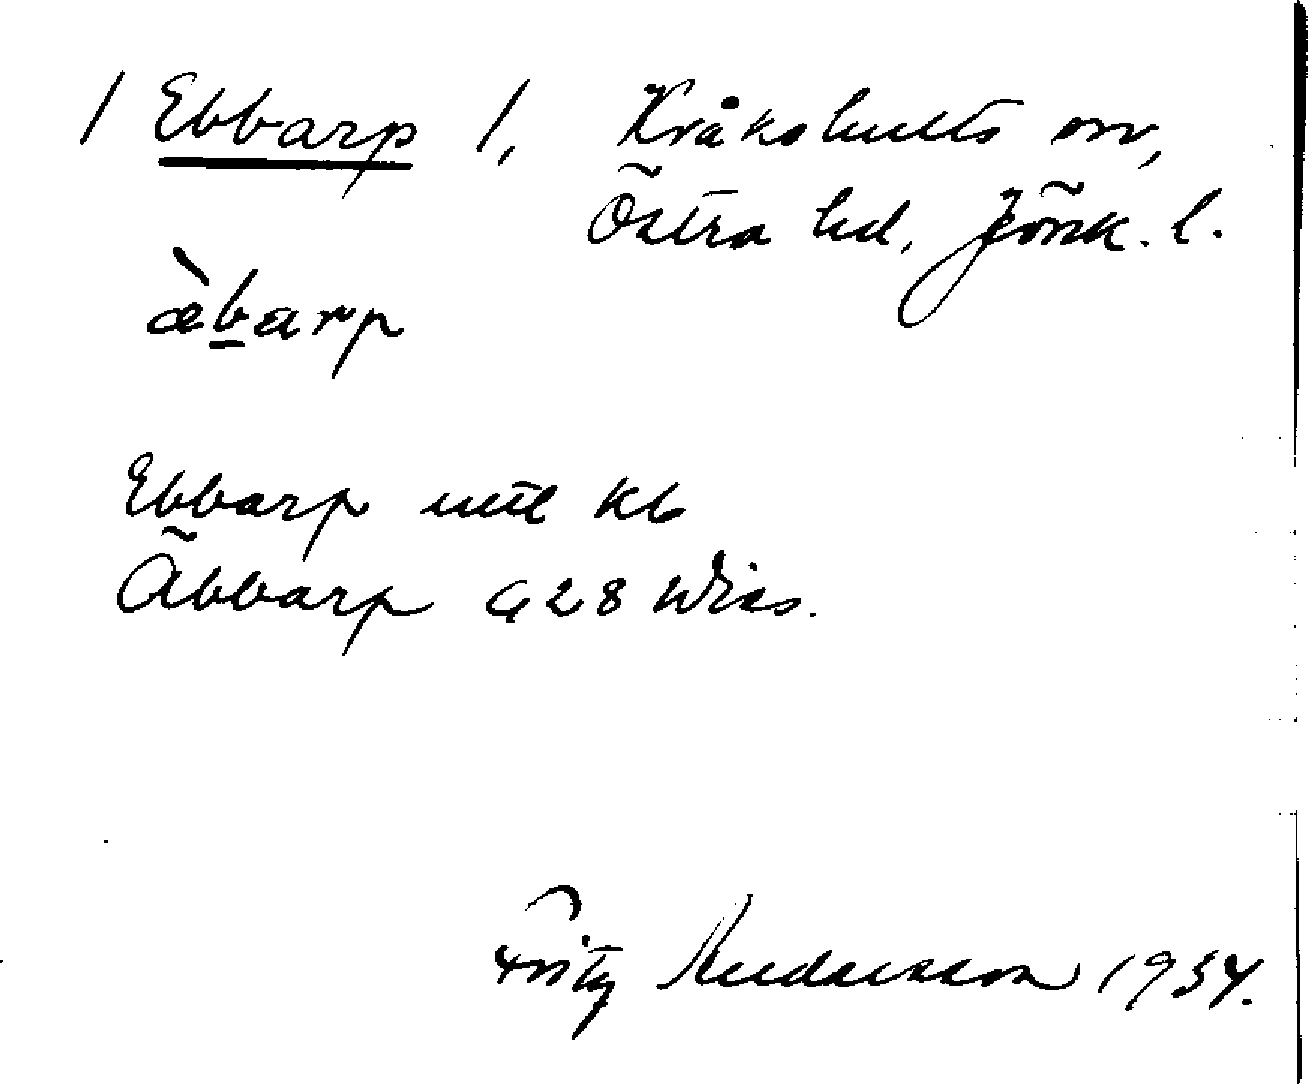 / Ebbarp /, Kråkshults sn,
Östra hd, Jönk. l.
æ̀barp
Ebbarp utt kb
Äbbarp G 28 Wies.
Fritz Andersson 1934.